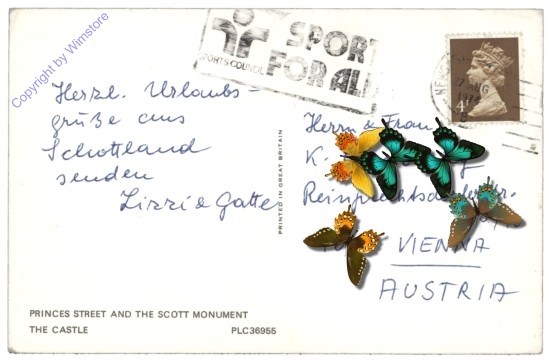 Copyright by Wimstore
SPORTS COUNCIL
SPORT
FOR ALL
Herzl. Urlaubs-
grüße aus
Schottland
senden
Lizzi & Gatte
PRINTED IN GREAT BRITAIN
Herrn & Frau
K.
VIENNA
AUSTRIA
PRINCES STREET AND THE SCOTT MONUMENT
THE CASTLE PLC36955